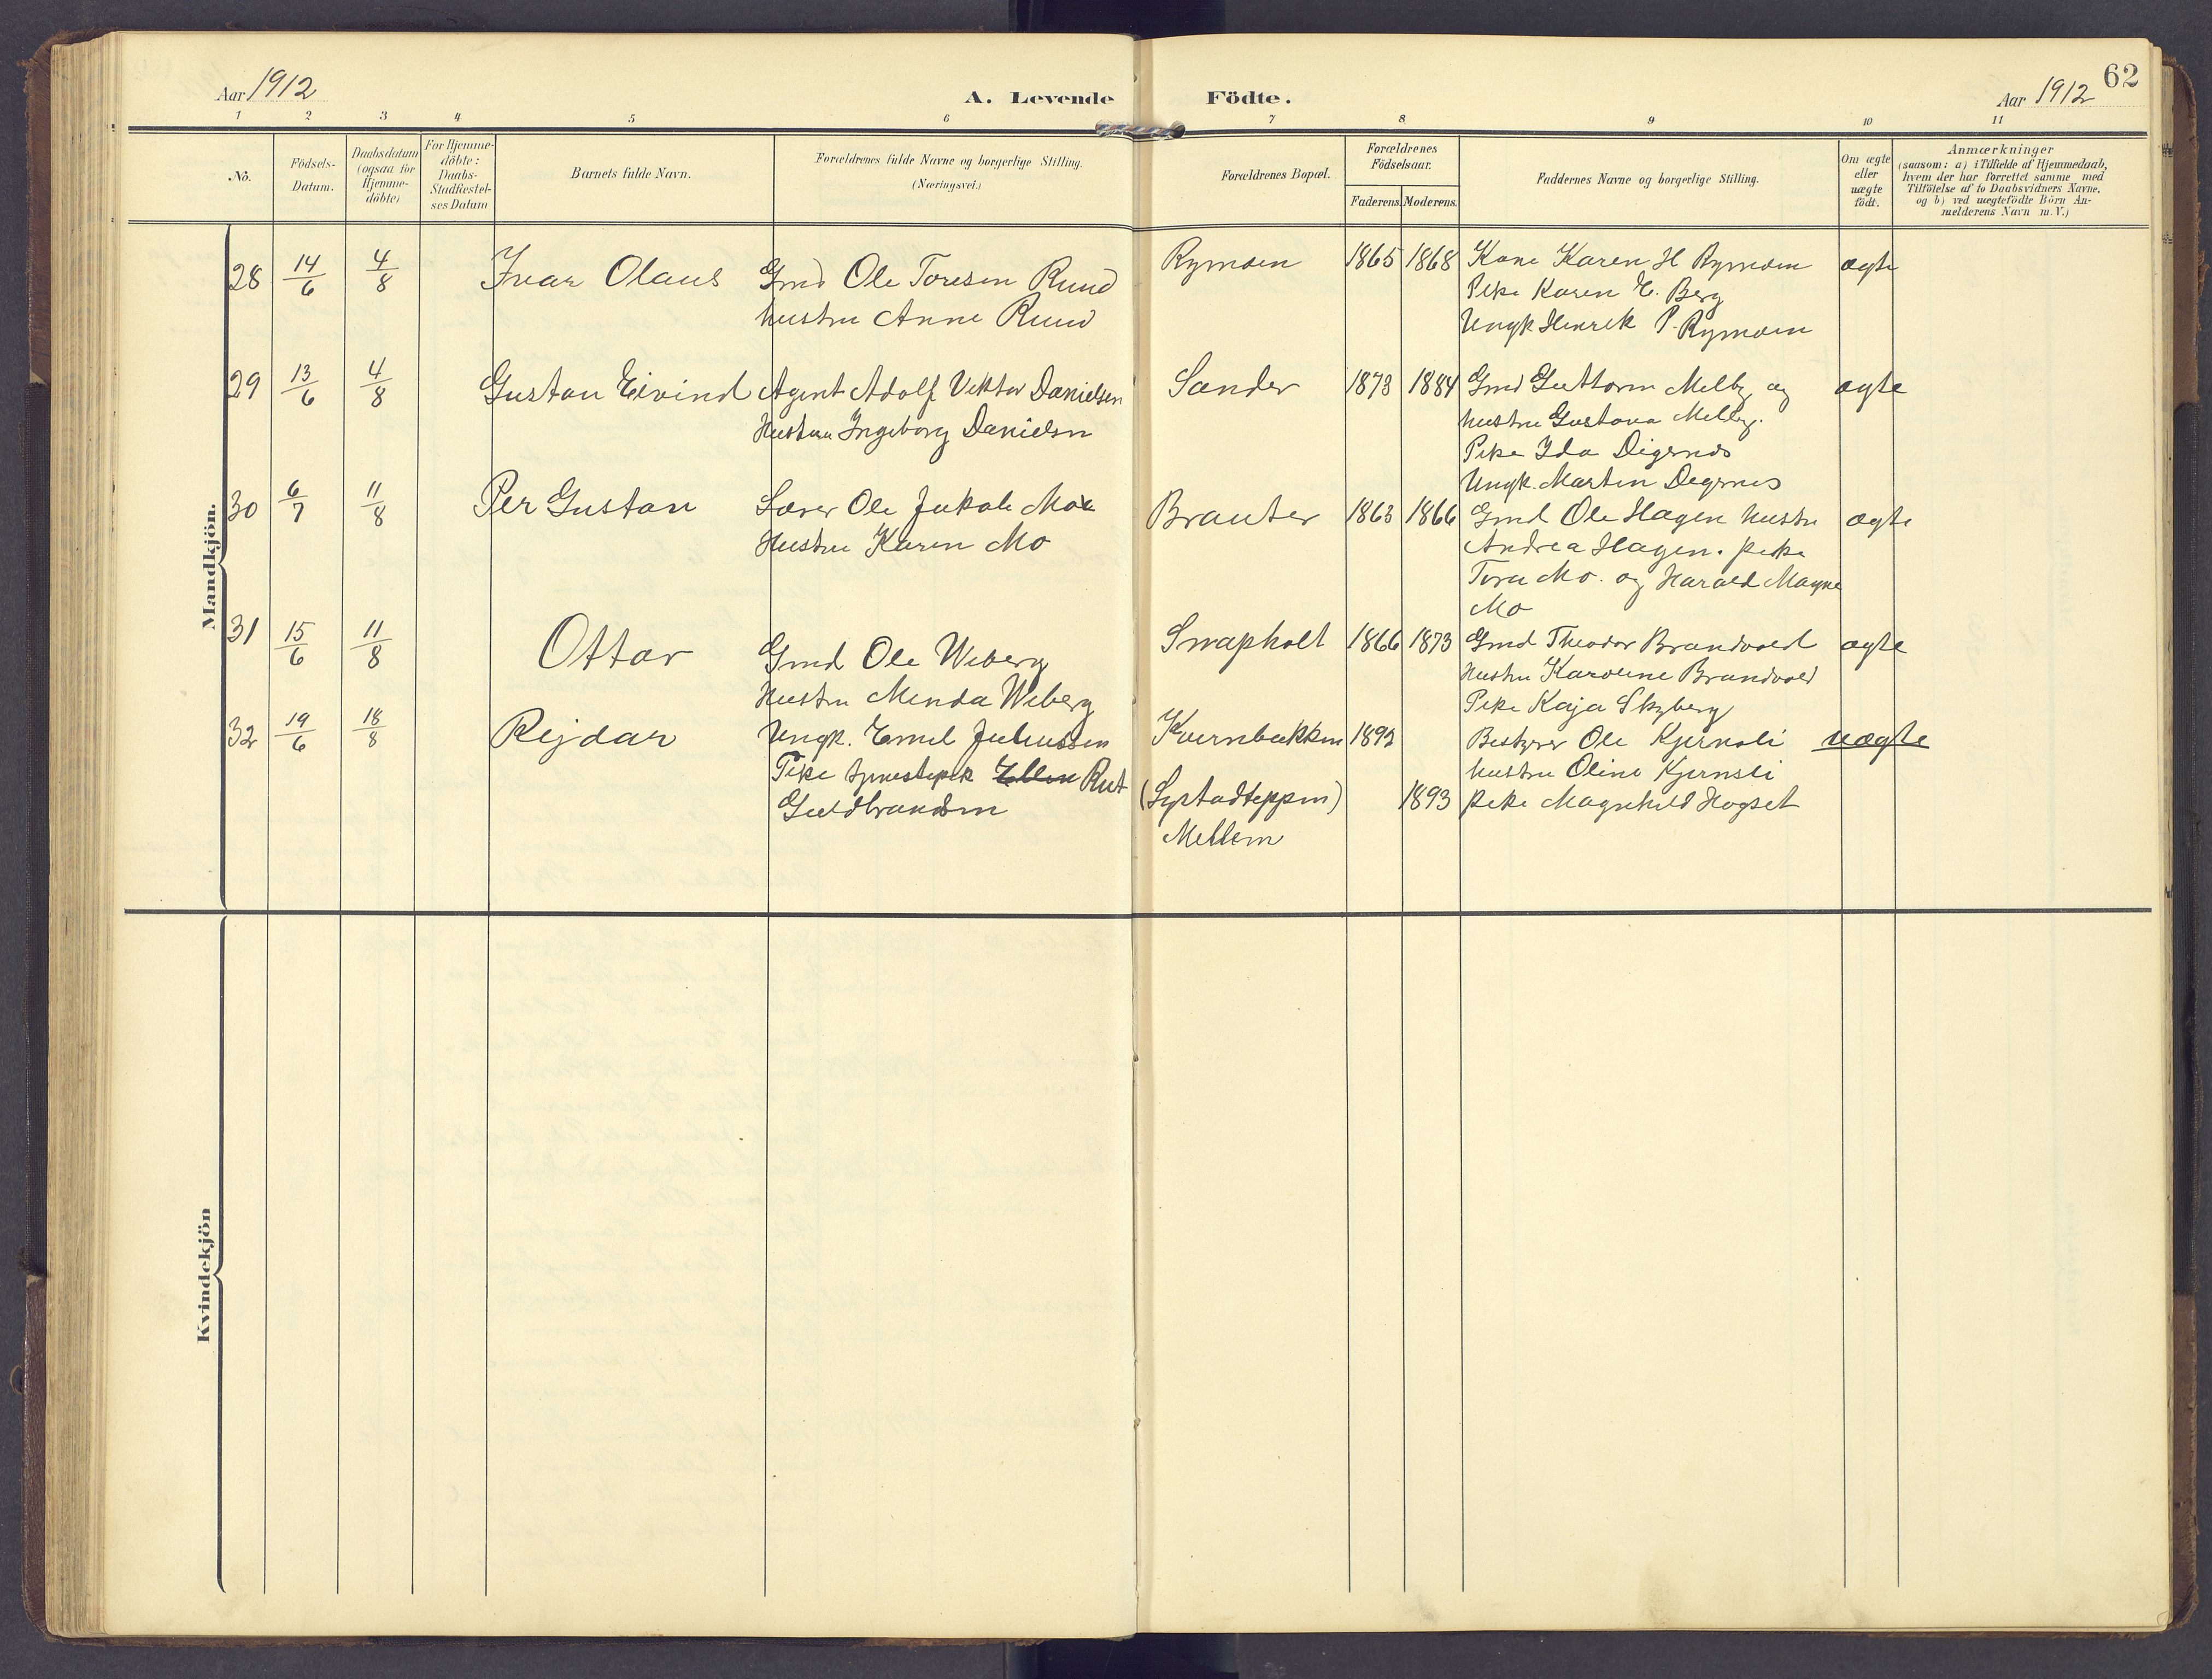 Aar 1912
A. Levende Födte.
Aar 1912
62
1 2 3 4 5 6 7 8 9 10 11
No.
Födsels-
Datum.
Daabsdatum
(ogsaa for
Hjemme-
döbte)
For Hjemme-
döbte:
Daabs-
Stadfæstel-
ses Datum
Barnets fulde Navn.
Forældrenes fulde Navne og borgerlige Stilling.
(Næringsvei.)
Forældrenes Bopæl.
Forældrenes
Födselsaar.
Faderens. Moderens.
Faddernes Navne og borgerlige Stilling.
Om ægte
eller
uægte
födt.
Anmærkninger
(saasom: a) i Tilfælde af Hjemmedaab,
hvem der har forrettet samme med
Tilföielse af to Daabsvidners Navne,
og b) ved uægtefödte Börn An-
melderens Navn m.V.)
Mandkjön.
28 14/6 4/8 Ivar Olaus
Gmd Ole Toresen Ruud
hustru Anne Ruud
Rymoen 1865 1868
Kone Karen H Rymoen
Pike Karen E. Berg
Ungk Henrik P. Rymoen
ægte
29 13/6 4/8 Gustav Eivind
Agent Adolf Viktor Danielsen
Hustru Ingeborg Danielsen
Sander 1873 1884
Gmd Guttorm Melby og
hustru Gustava Melby.
Pike Ida Digernes
Ungk. Martin Degernes
ægte
30 6/7 11/8 Per Gustav
Lærer Ole Jakob Moe
Hustru Karen Mo
Brauter 1863 1866
Gmd Ole Hagen hustru
Andrea Hagen. pike
Tora Mo. og Harald Magne
Mo
ægte
31 15/6 11/8 Ottar
Gmd Ole Weberg
Hustru Menda Weberg
Snapholt 1866 1873
Gmd Theodor Brandvold
Hustru Karoline Brandvold
Pike Kaja Skyberg
ægte
32 19/6 18/8 Rejdar
Ungk. Emil Juliussen
Pike tjenestepike Ellen Rut
Guldbrandsen
Kvernbækken 1892
(Systadteppen) 1893
Mellem
Bestyrer Ole Kjernsli
hustru Oline Kjernsli
pike Magnhild Hogset
uægte
Kvindekjön